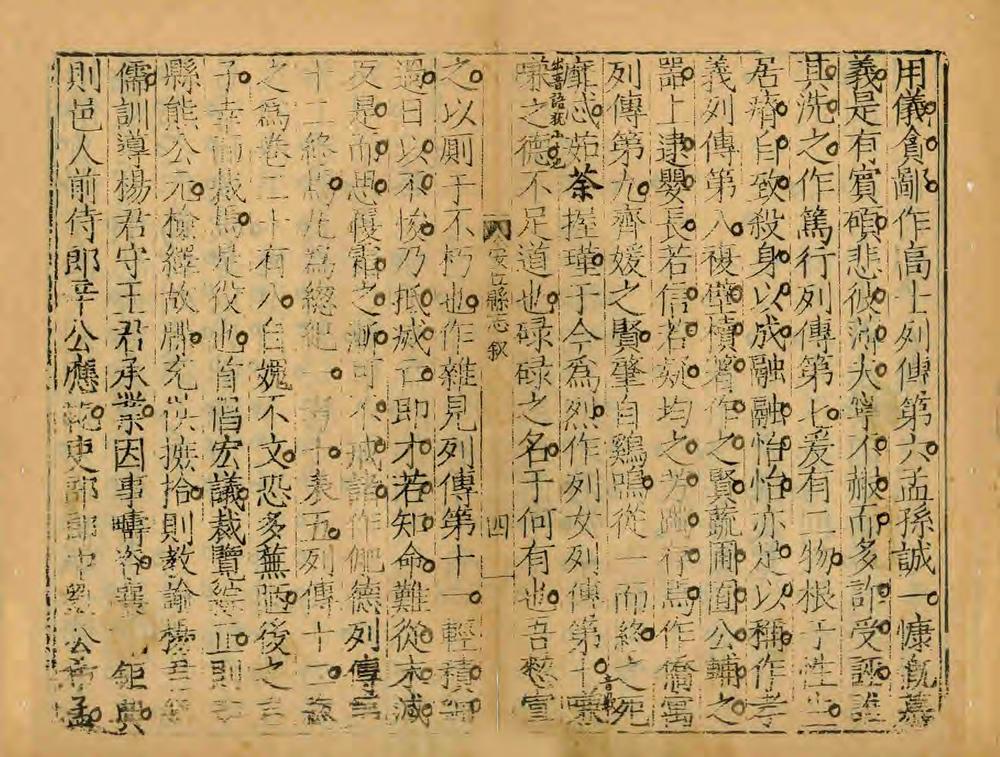 用儀貪鄙作高士列傳第六孟孫誠一慷慨慕
義是有實碩悲彼薄夫寧不赧而多許受誣誰
其洗之作篤行列傳第七爰有二物根于性生
居瘠自致殺身以成融融怡怡亦足以稱作孝
義列傳第八複壁犢著作之賢蔬圃園公輔之
器上逮嬰長若信若疑均之芳躅行焉作僑寓
列傳第九齊媛之賢肇自鷄鳴從一而終之死
靡忒茹荼握瑾于今為烈作列女列傳第十
嗛之德不足道也碌碌之名于何有也吾
之以厠于不朽也作雜見列傳第十一輕積
過日以不悛乃抵滅亡即才若知命難從末減
反是而思履霜之漸可不戒諸作俶德列傳第
十二終焉凡為總紀一表五列傳十二
之為卷二十有八自媿不文恐多蕪陋後之
子幸而裁焉是役也首倡宏議裁覽綜正則
縣熊公元檢繹故牘充供摭拾則教諭楊君
儒訓導楊君守王君承業因事疇咨襄鉅典
則邑人前侍郎辛公應乾吏部郎中劉公希孟
安丘縣志 叙 四